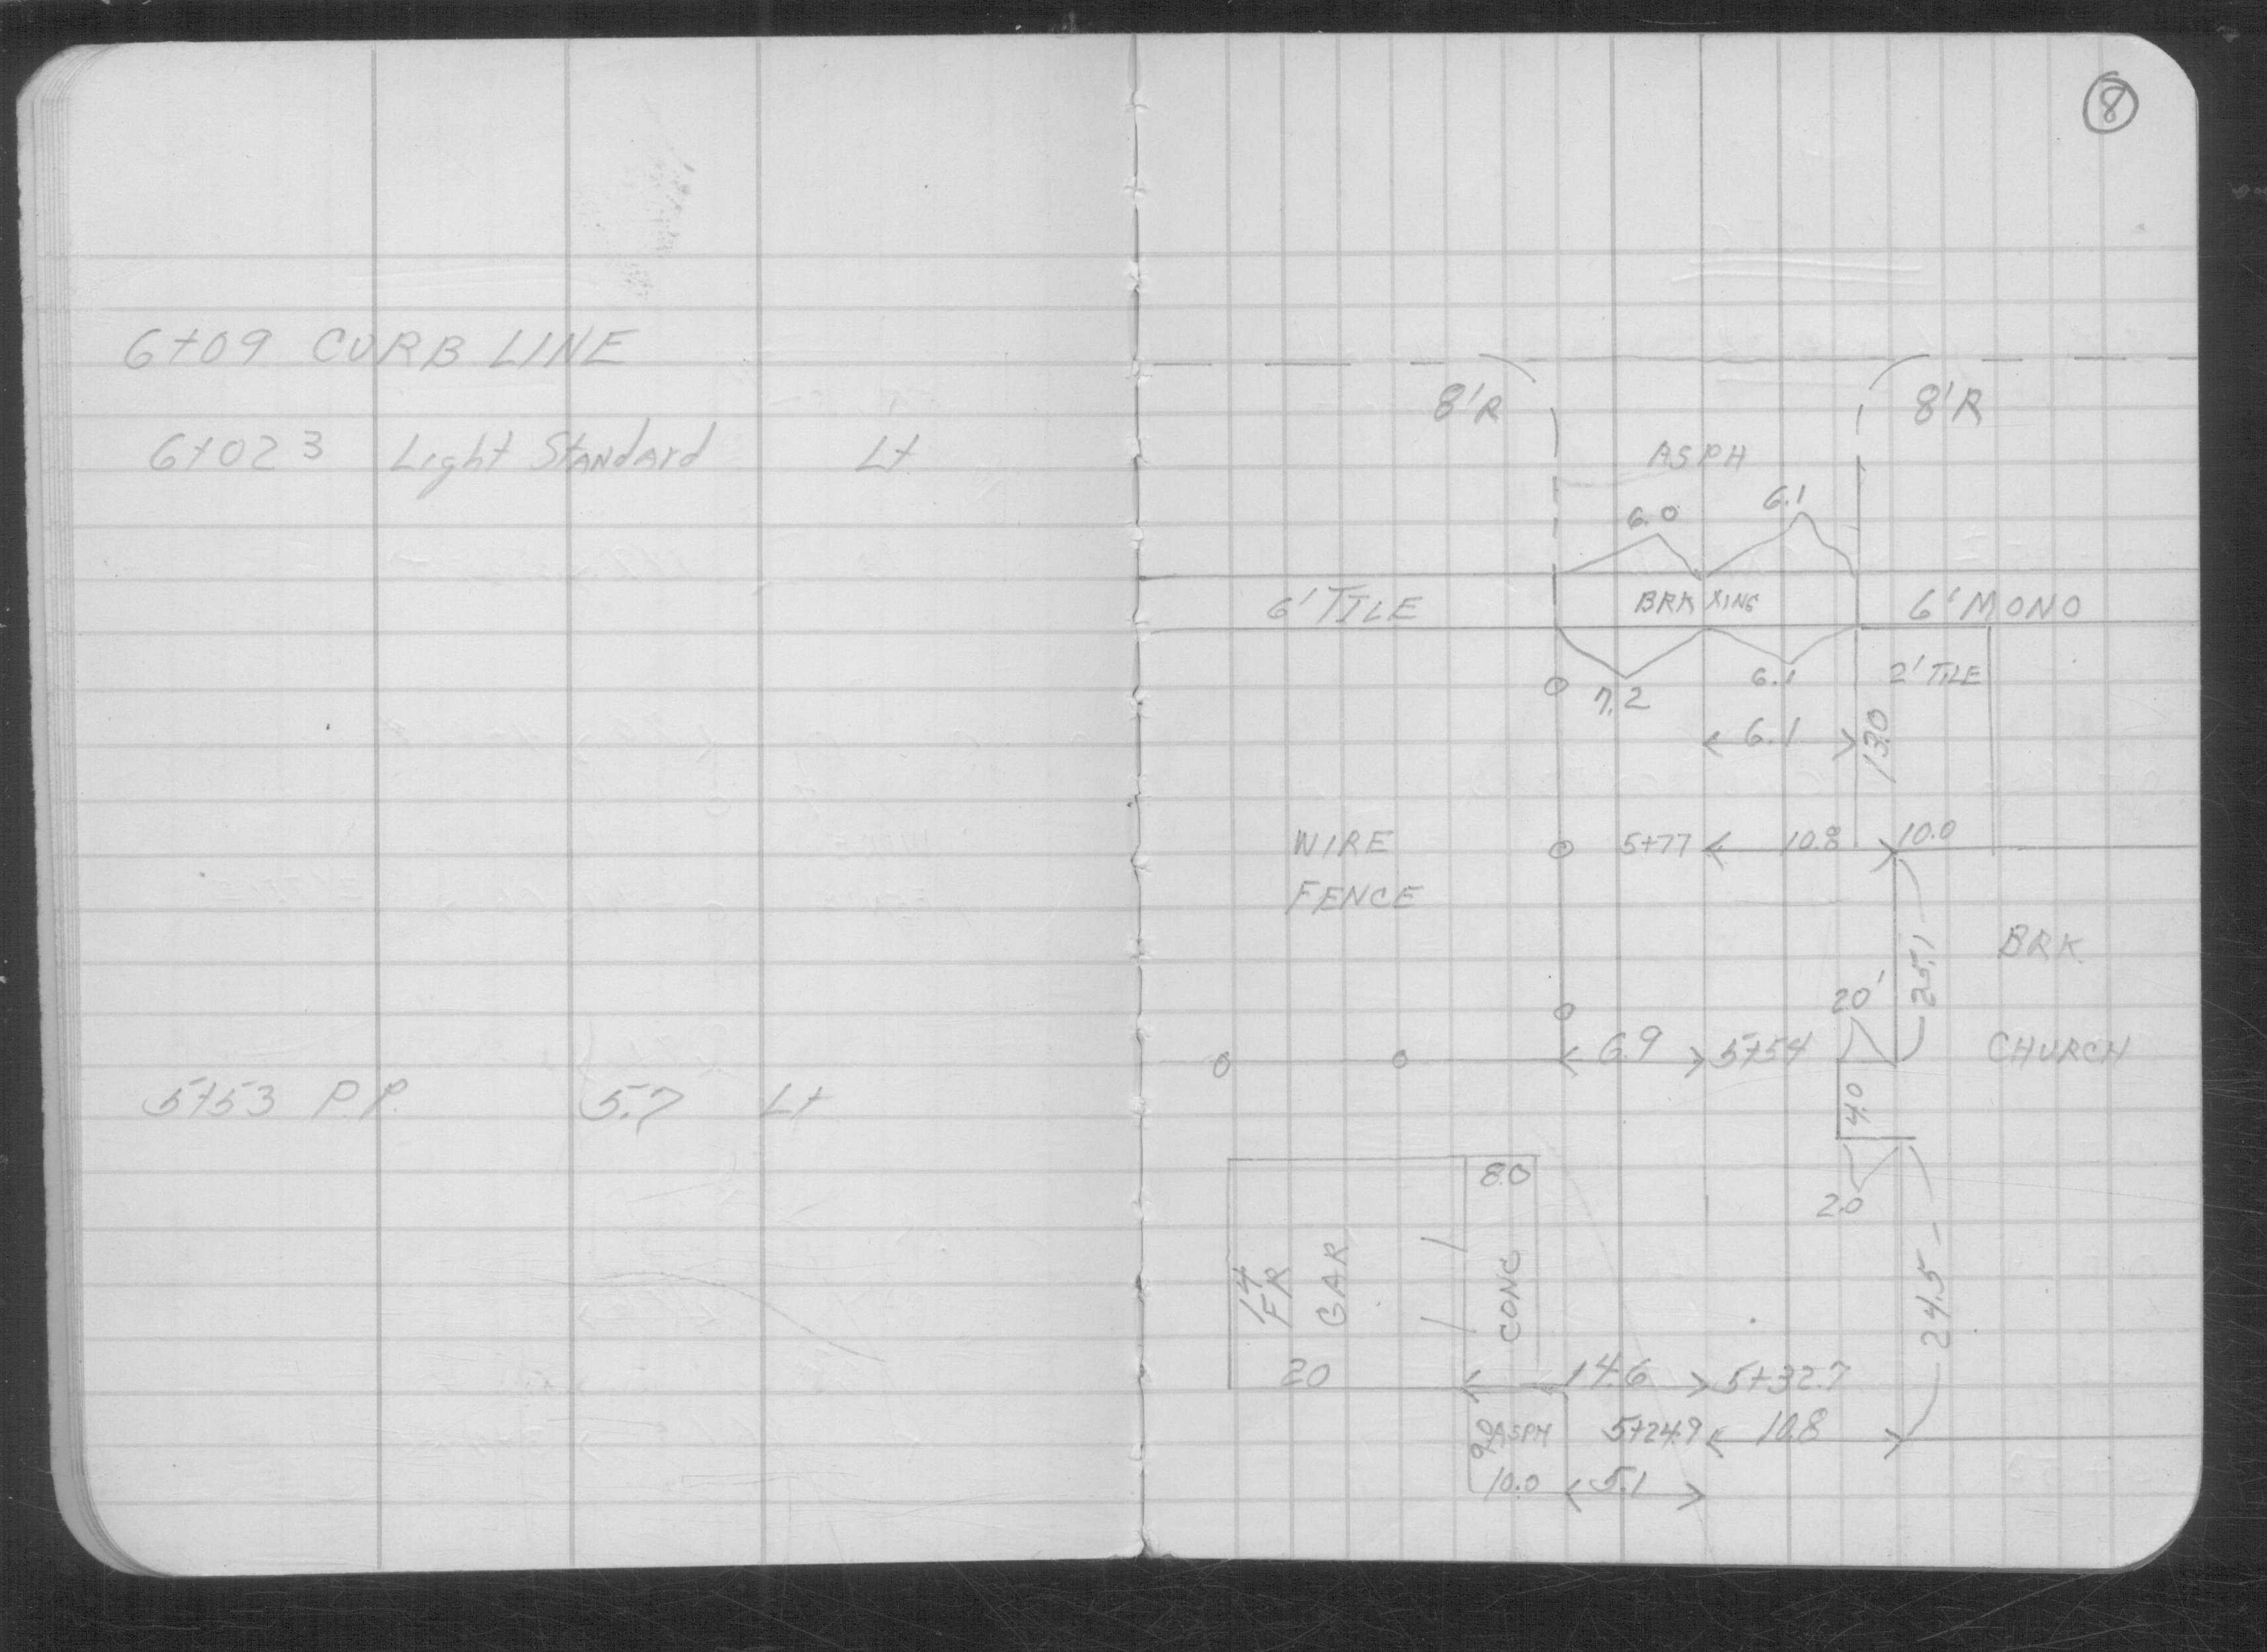 6+09 CURB LINE
6+023 Light Standard Lt
5+53 P.P. 5.7 Lt
8
8'R 8'R
ASPH
6.0 6.1
6' TILE BRK XING 6' MONO
7.2 6.1 2' TILE
6.1 13.0
WIRE 5+77 10.8 10.0
FENCE
25.1 BRK
20'
6.9 5+54 CHURCH
4.0
8.0
2.0
14 FR GAR CONC 24.5
20 14.6 5+32.7
9.0 ASPH 5+24.9 10.8
10.0 5.1